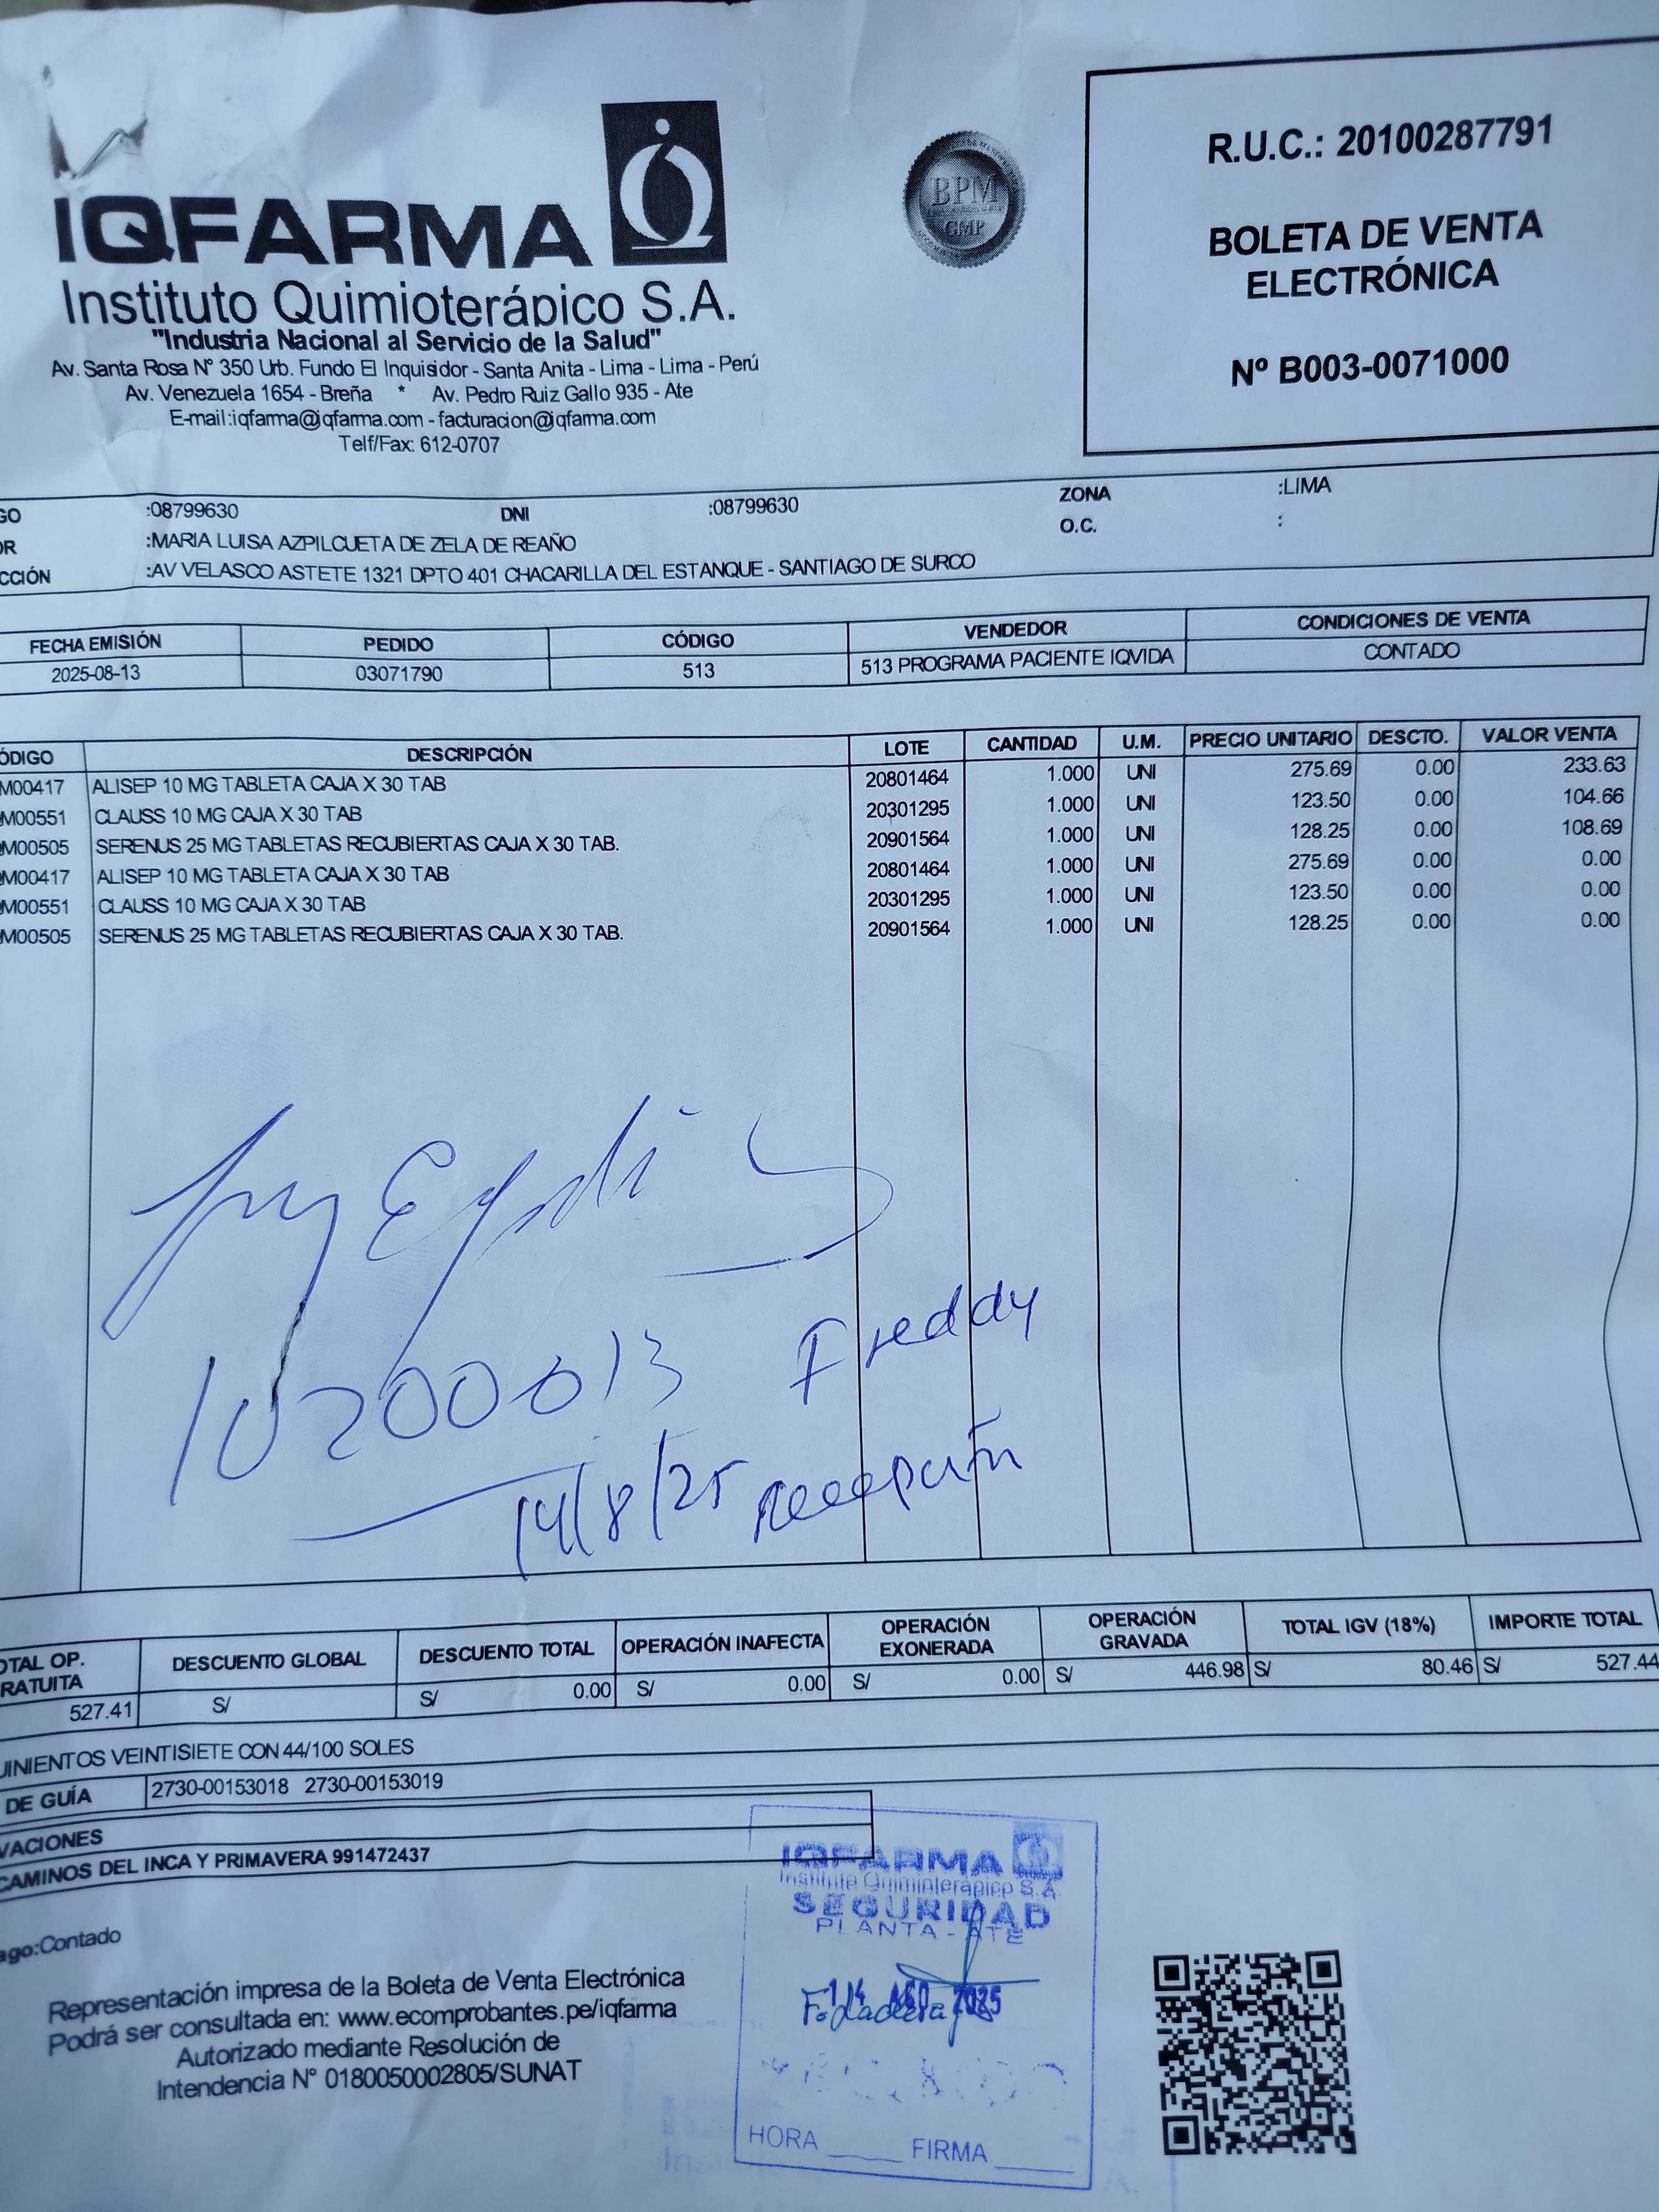 IQFARMA
Instituto Quimioterápico S.A.
"Industria Nacional al Servicio de la Salud"
Av. Santa Rosa Nº 350 Urb. Fundo El Inquisidor - Santa Anita - Lima - Lima - Perú
Av. Venezuela 1654 - Breña * Av. Pedro Ruiz Gallo 935 - Ate
E-mail:iqfarma@iqfarma.com - facturacion@iqfarma.com
Telf/Fax: 612-0707
BPM
GMP
R.U.C.: 20100287791
BOLETA DE VENTA
ELECTRÓNICA
Nº B003-0071000
GO :08799630 DNI :08799630 ZONA :LIMA
OR :MARIA LUISA AZPILCUETA DE ZELA DE REAÑO O.C. :
CCIÓN :AV VELASCO ASTETE 1321 DPTO 401 CHACARILLA DEL ESTANQUE - SANTIAGO DE SURCO
FECHA EMISIÓN PEDIDO CÓDIGO VENDEDOR CONDICIONES DE VENTA
2025-08-13 03071790 513 513 PROGRAMA PACIENTE IQVIDA CONTADO
ÓDIGO DESCRIPCIÓN LOTE CANTIDAD U.M. PRECIO UNITARIO DESCTO. VALOR VENTA
M00417 ALISEP 10 MG TABLETA CAJA X 30 TAB 20801464 1.000 UNI 275.69 0.00 233.63
M00551 CLAUSS 10 MG CAJA X 30 TAB 20301295 1.000 UNI 123.50 0.00 104.66
M00505 SERENUS 25 MG TABLETAS RECUBIERTAS CAJA X 30 TAB. 20901564 1.000 UNI 128.25 0.00 108.69
M00417 ALISEP 10 MG TABLETA CAJA X 30 TAB 20801464 1.000 UNI 275.69 0.00 0.00
M00551 CLAUSS 10 MG CAJA X 30 TAB 20301295 1.000 UNI 123.50 0.00 0.00
M00505 SERENUS 25 MG TABLETAS RECUBIERTAS CAJA X 30 TAB. 20901564 1.000 UNI 128.25 0.00 0.00
10200013 Freddy
14/8/25 Recepción
OTAL OP. RATUITA DESCUENTO GLOBAL DESCUENTO TOTAL OPERACIÓN INAFECTA OPERACIÓN EXONERADA OPERACIÓN GRAVADA TOTAL IGV (18%) IMPORTE TOTAL
527.41 S/ S/ 0.00 S/ 0.00 S/ 0.00 S/ 446.98 S/ 80.46 S/ 527.44
UINIENTOS VEINTISIETE CON 44/100 SOLES
DE GUÍA 2730-00153018 2730-00153019
VACIONES
CAMINOS DEL INCA Y PRIMAVERA 991472437
ago:Contado
Representación impresa de la Boleta de Venta Electrónica
Podrá ser consultada en: www.ecomprobantes.pe/iqfarma
Autorizado mediante Resolución de
Intendencia N° 0180050002805/SUNAT
IQFARMA
Instituto Quimioterápico S.A.
SEGURIDAD
PLANTA - ATE
14 AGO 2025
HORA FIRMA